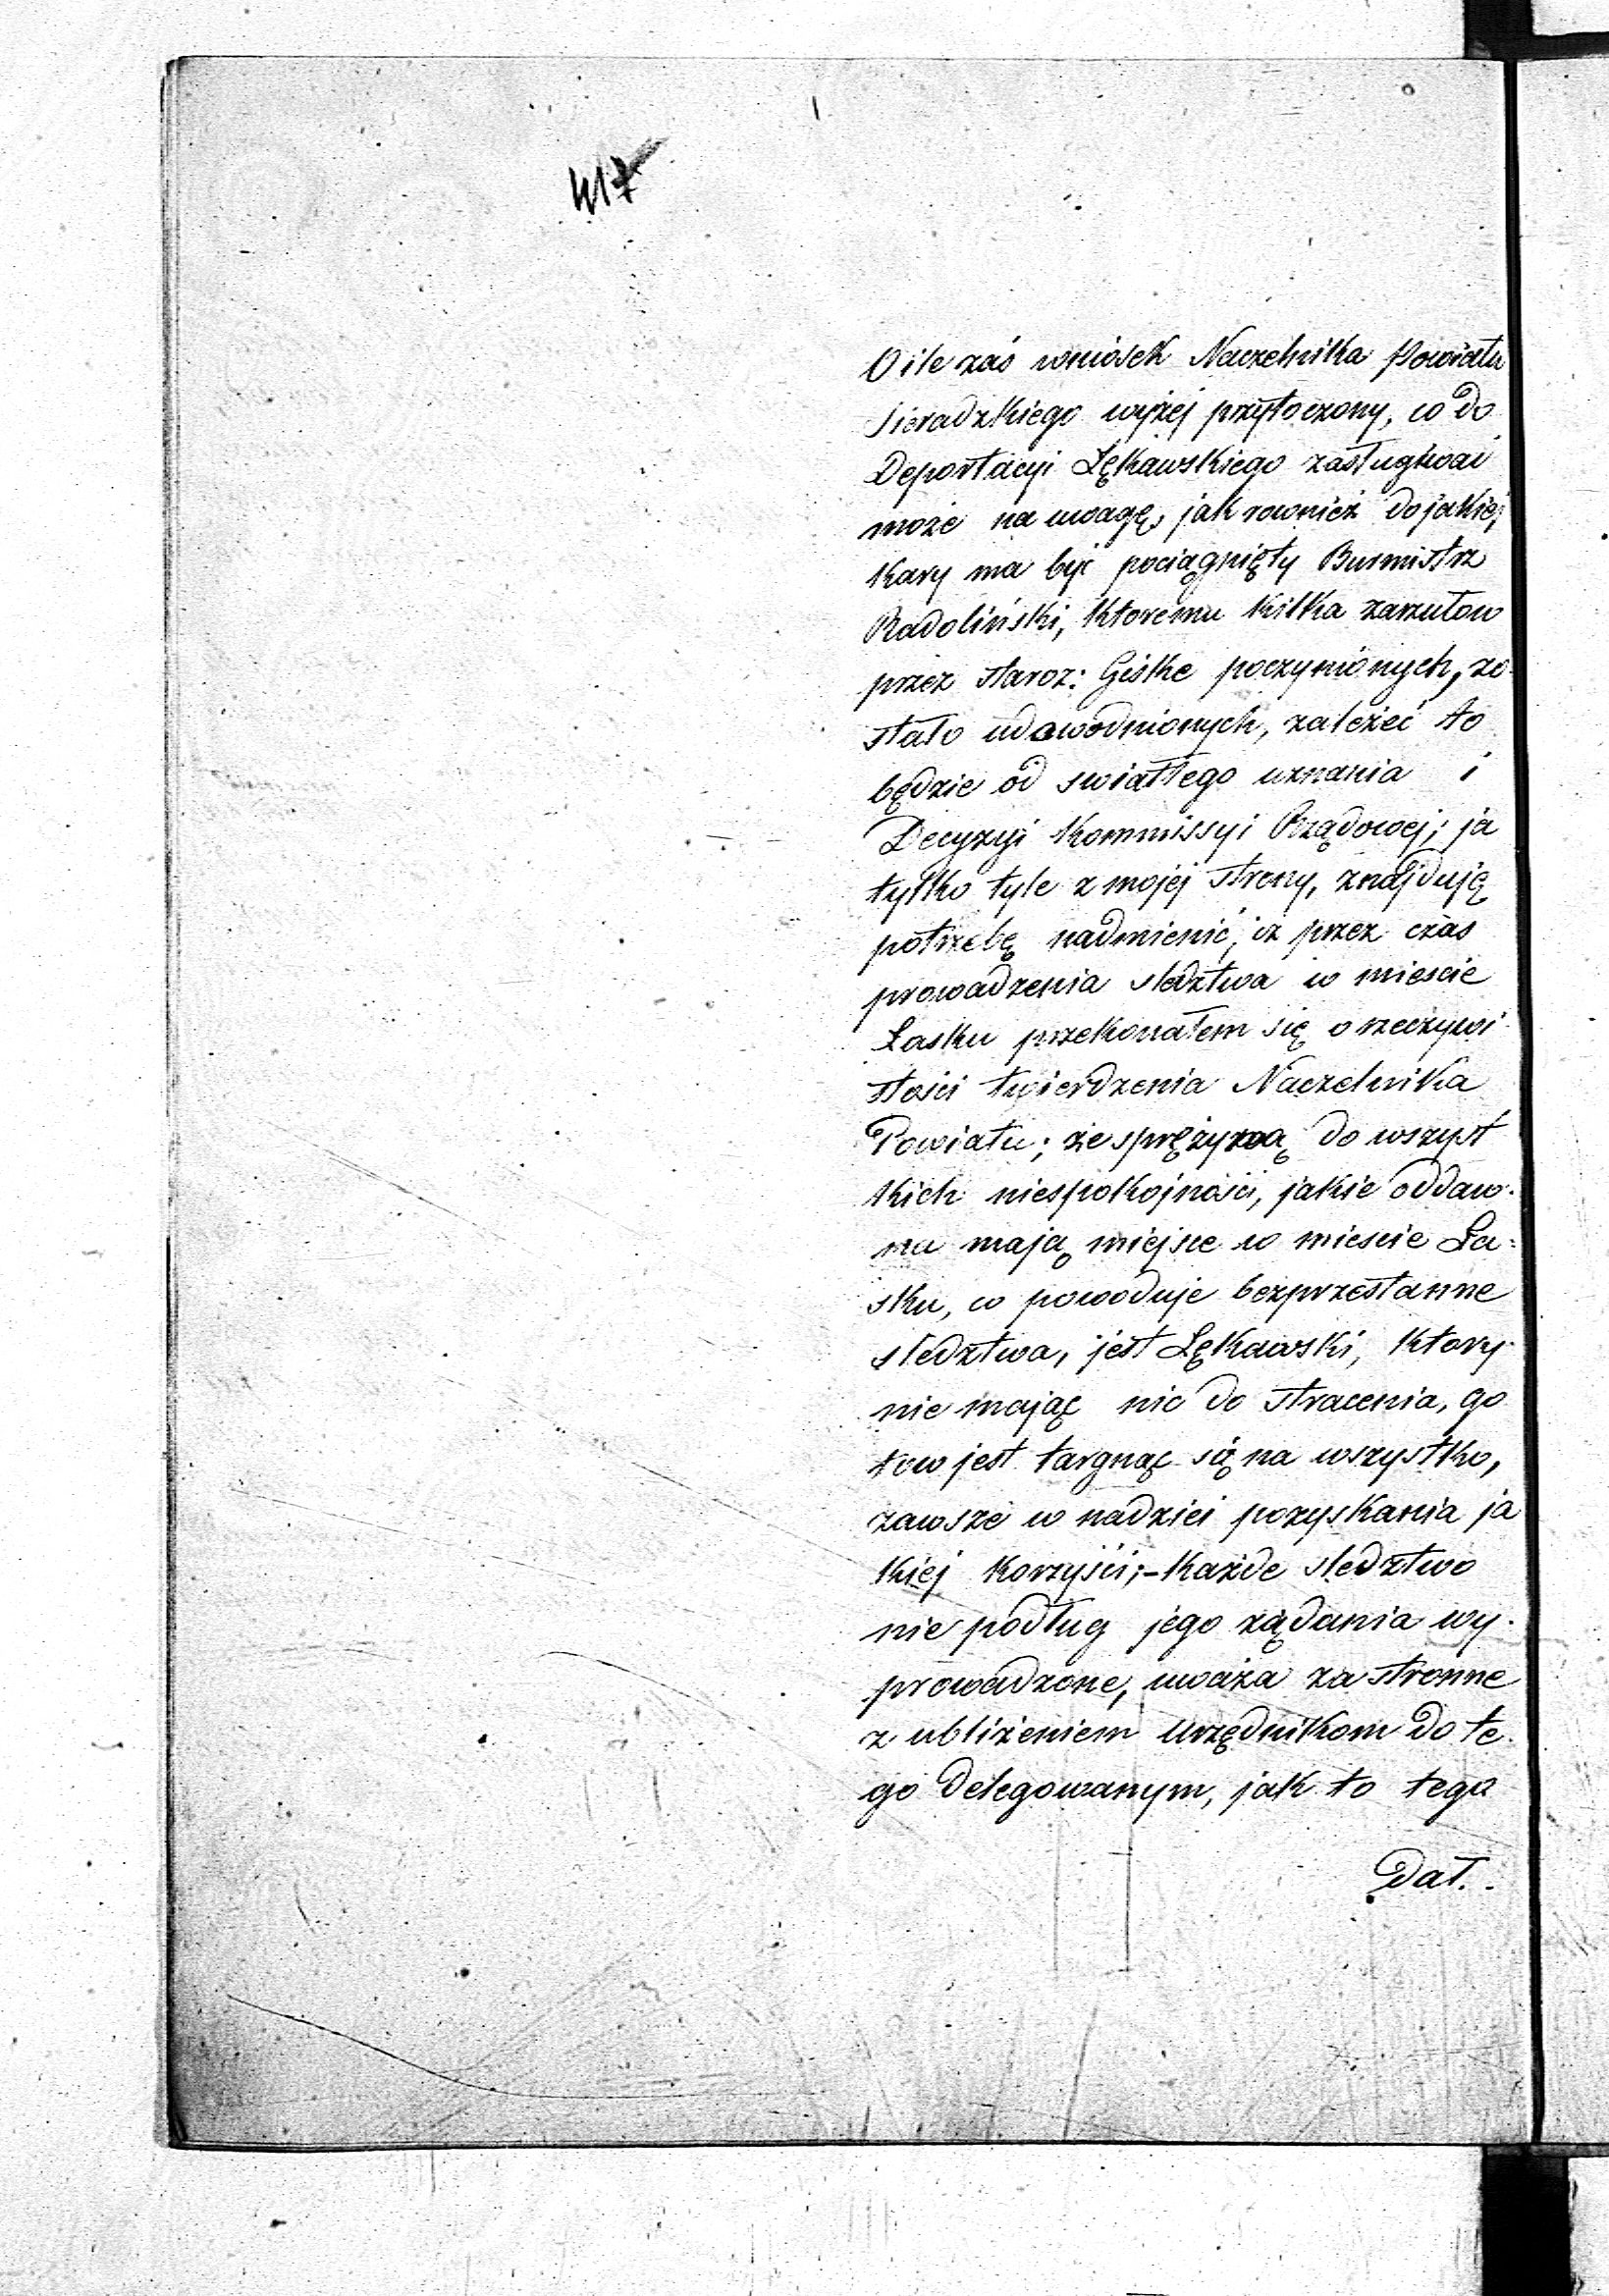 417
O ile zaś wniosek Naczelnika Powiatu
Sieradzkiego wyżej przytoczony, co do
Deportacyi Łękawskiego zasługiwać
może na uwagę, jak rownież do jakiej
kary ma być pociągnięty Burmistrz
Radoliński, ktoremu kilka zarzutow
przez staroz: Gistke poczynionych, zo-
stało udowodnionych, zależeć to
będzie od swiatłego uznania i
Decyzyi Kommissyi Rządowej; ja
tylko tyle z mojej strony, znajduję
potrzebę nadmienić, iż przez czas
prowadzenia sledztwa w miescie
Łasku przekonałem się o rzeczywi-
stości twierdzenia Naczelnika
Powiatu; że sprężyną do wszyst
kich niespokojności, jakie oddaw-
na mają miejsce w miescie Ła=
sku, co powoduje bezprzestanne
sledztwa, jest Łękawski, ktory
nie mając nic do stracenia, go
tow jest targnąć się na wszystko,
zawsze w nadziei pozyskania ja
kiej korzyści;- każde sledztwo
nie podług jego żądania wy-
prowadzone, uważa za stronne
z ubliżeniem urzędnikom do te-
go delegowanym, jak to tego
Dał.